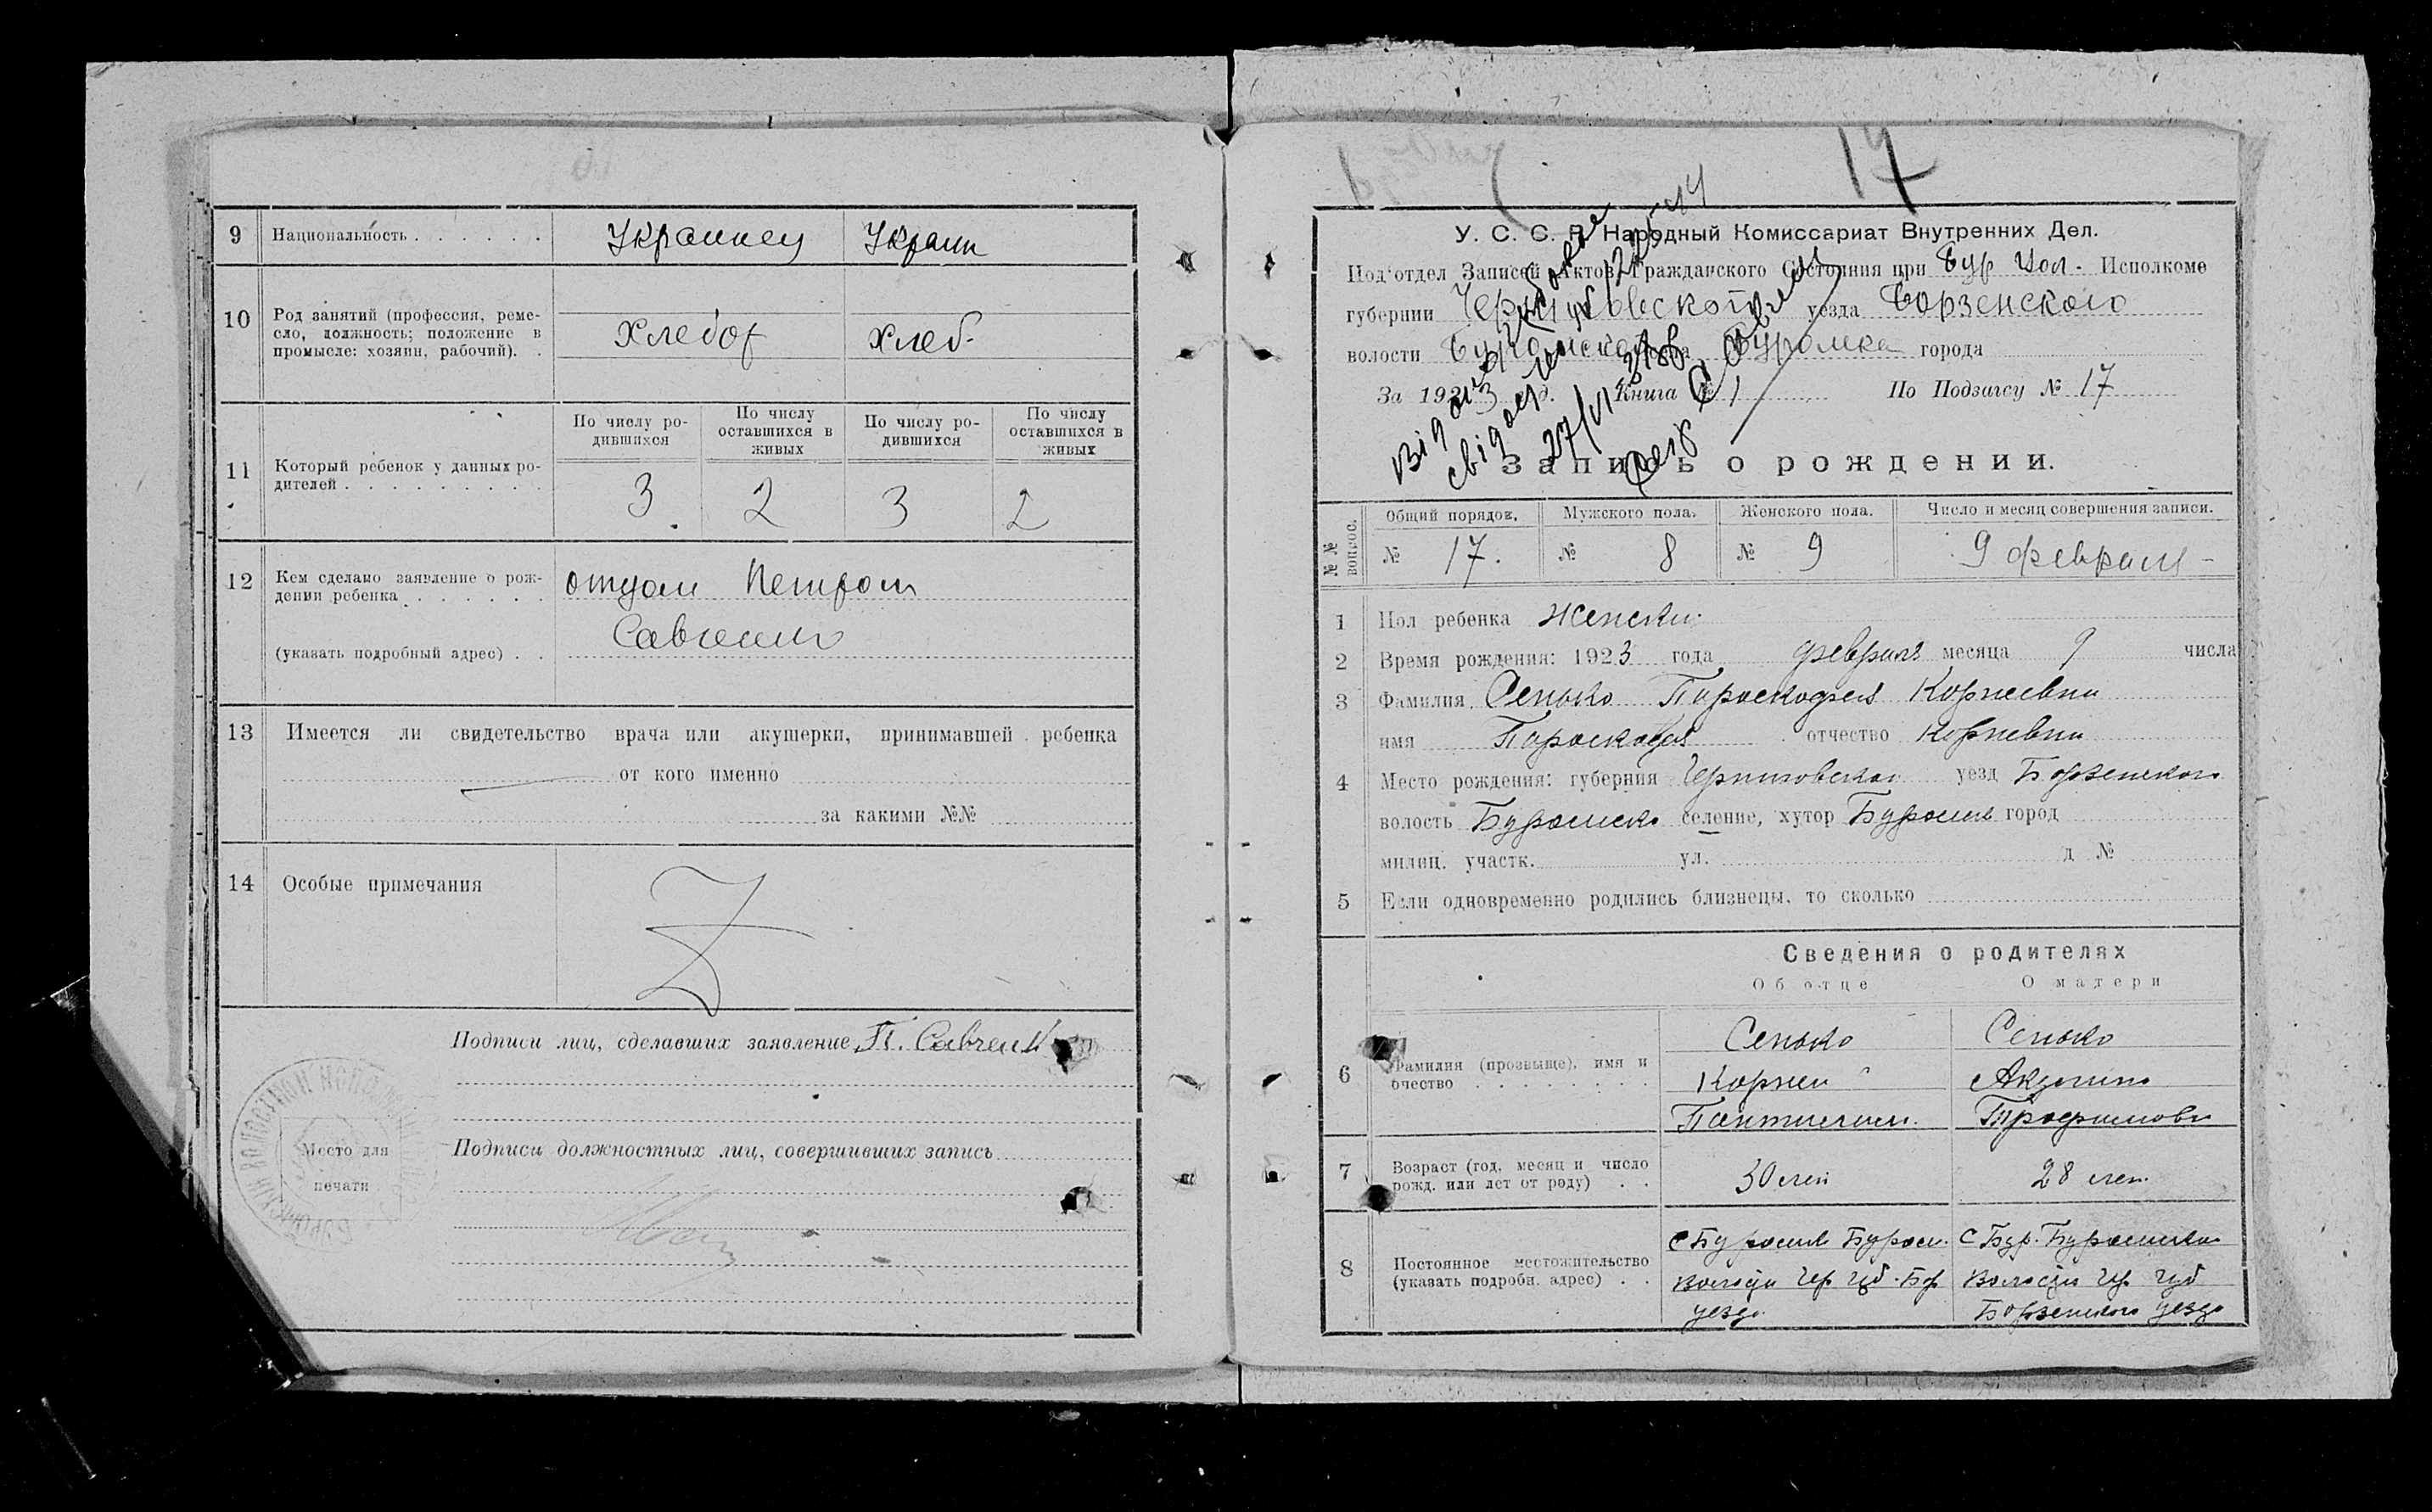 9 Национальность . . . . . . Украинец Украин
10 Род занятий (профессия, реме-
сло, должность; положение в
промысле: хозяин, рабочий). . Хлебор хлеб-
11 Который ребенок у данных ро-
дителей . . . . . . . . .
По числу ро-
дившихся
По числу
оставшихся в
живых
По числу ро-
дившихся
По числу
оставшихся в
живых
3 2 3 2
12 Кем сделано заявление о рож-
дении ребенка . . . . . . отцом Петром
(указать подробный адрес) . . Савченко
13 Имеется ли свидетельство врача или акушерки, принимавшей ребенка
от кого именно
за какими №№
14 Особые примечания
Подписи лиц, сделавших заявление П. Савченко
Подписи должностных лиц, совершивших запись
Место для
печати
17
У. С. С. Р. Народный Комиссариат Внутренних Дел.
Под'отдел Записей Актов Гражданского Состояния при Бур Вол. Исполкоме
губернии Черниговской уезда Борзенского
волости Буромской Буромка города
За 1923 Книга № 1 По Подзагсу № 17
27/VI
Запись о рождении.
№№ вопрос.
Общий порядок. Мужского пола. Женского пола. Число и месяц совершения записи.
№ 17. № 8 № 9 9 февраля
1 Пол ребенка женски
2 Время рождения: 1923 года февраля месяца 9 числа
3 Фамилия Сенько Параскофея Корневна
имя Параскофея отчество Корневна
4 Место рождения: губерния Черниговская уезд Борзенского
волость Буромско селение, хутор Буромка город
милиц. участк. ул. д №
5 Если одновременно родились близнецы, то сколько
Сведения о родителях
Об отце О матери
6 Фамилия (прозвыще), имя и
очество . . . . . . . .
Сенько Сенько
Корней Акулина
Пантилим. Трофимовн
7 Возраст (год, месяц и число
рожд. или лет от роду) . . 30 лет 28 лет
8 Постоянное местожительство
(указать подробн. адрес) . .
с Буромка Буром. С Бур. Буромской
Волости Чер губ. Бор Волости Чер губ
уезда Борзенского уезда